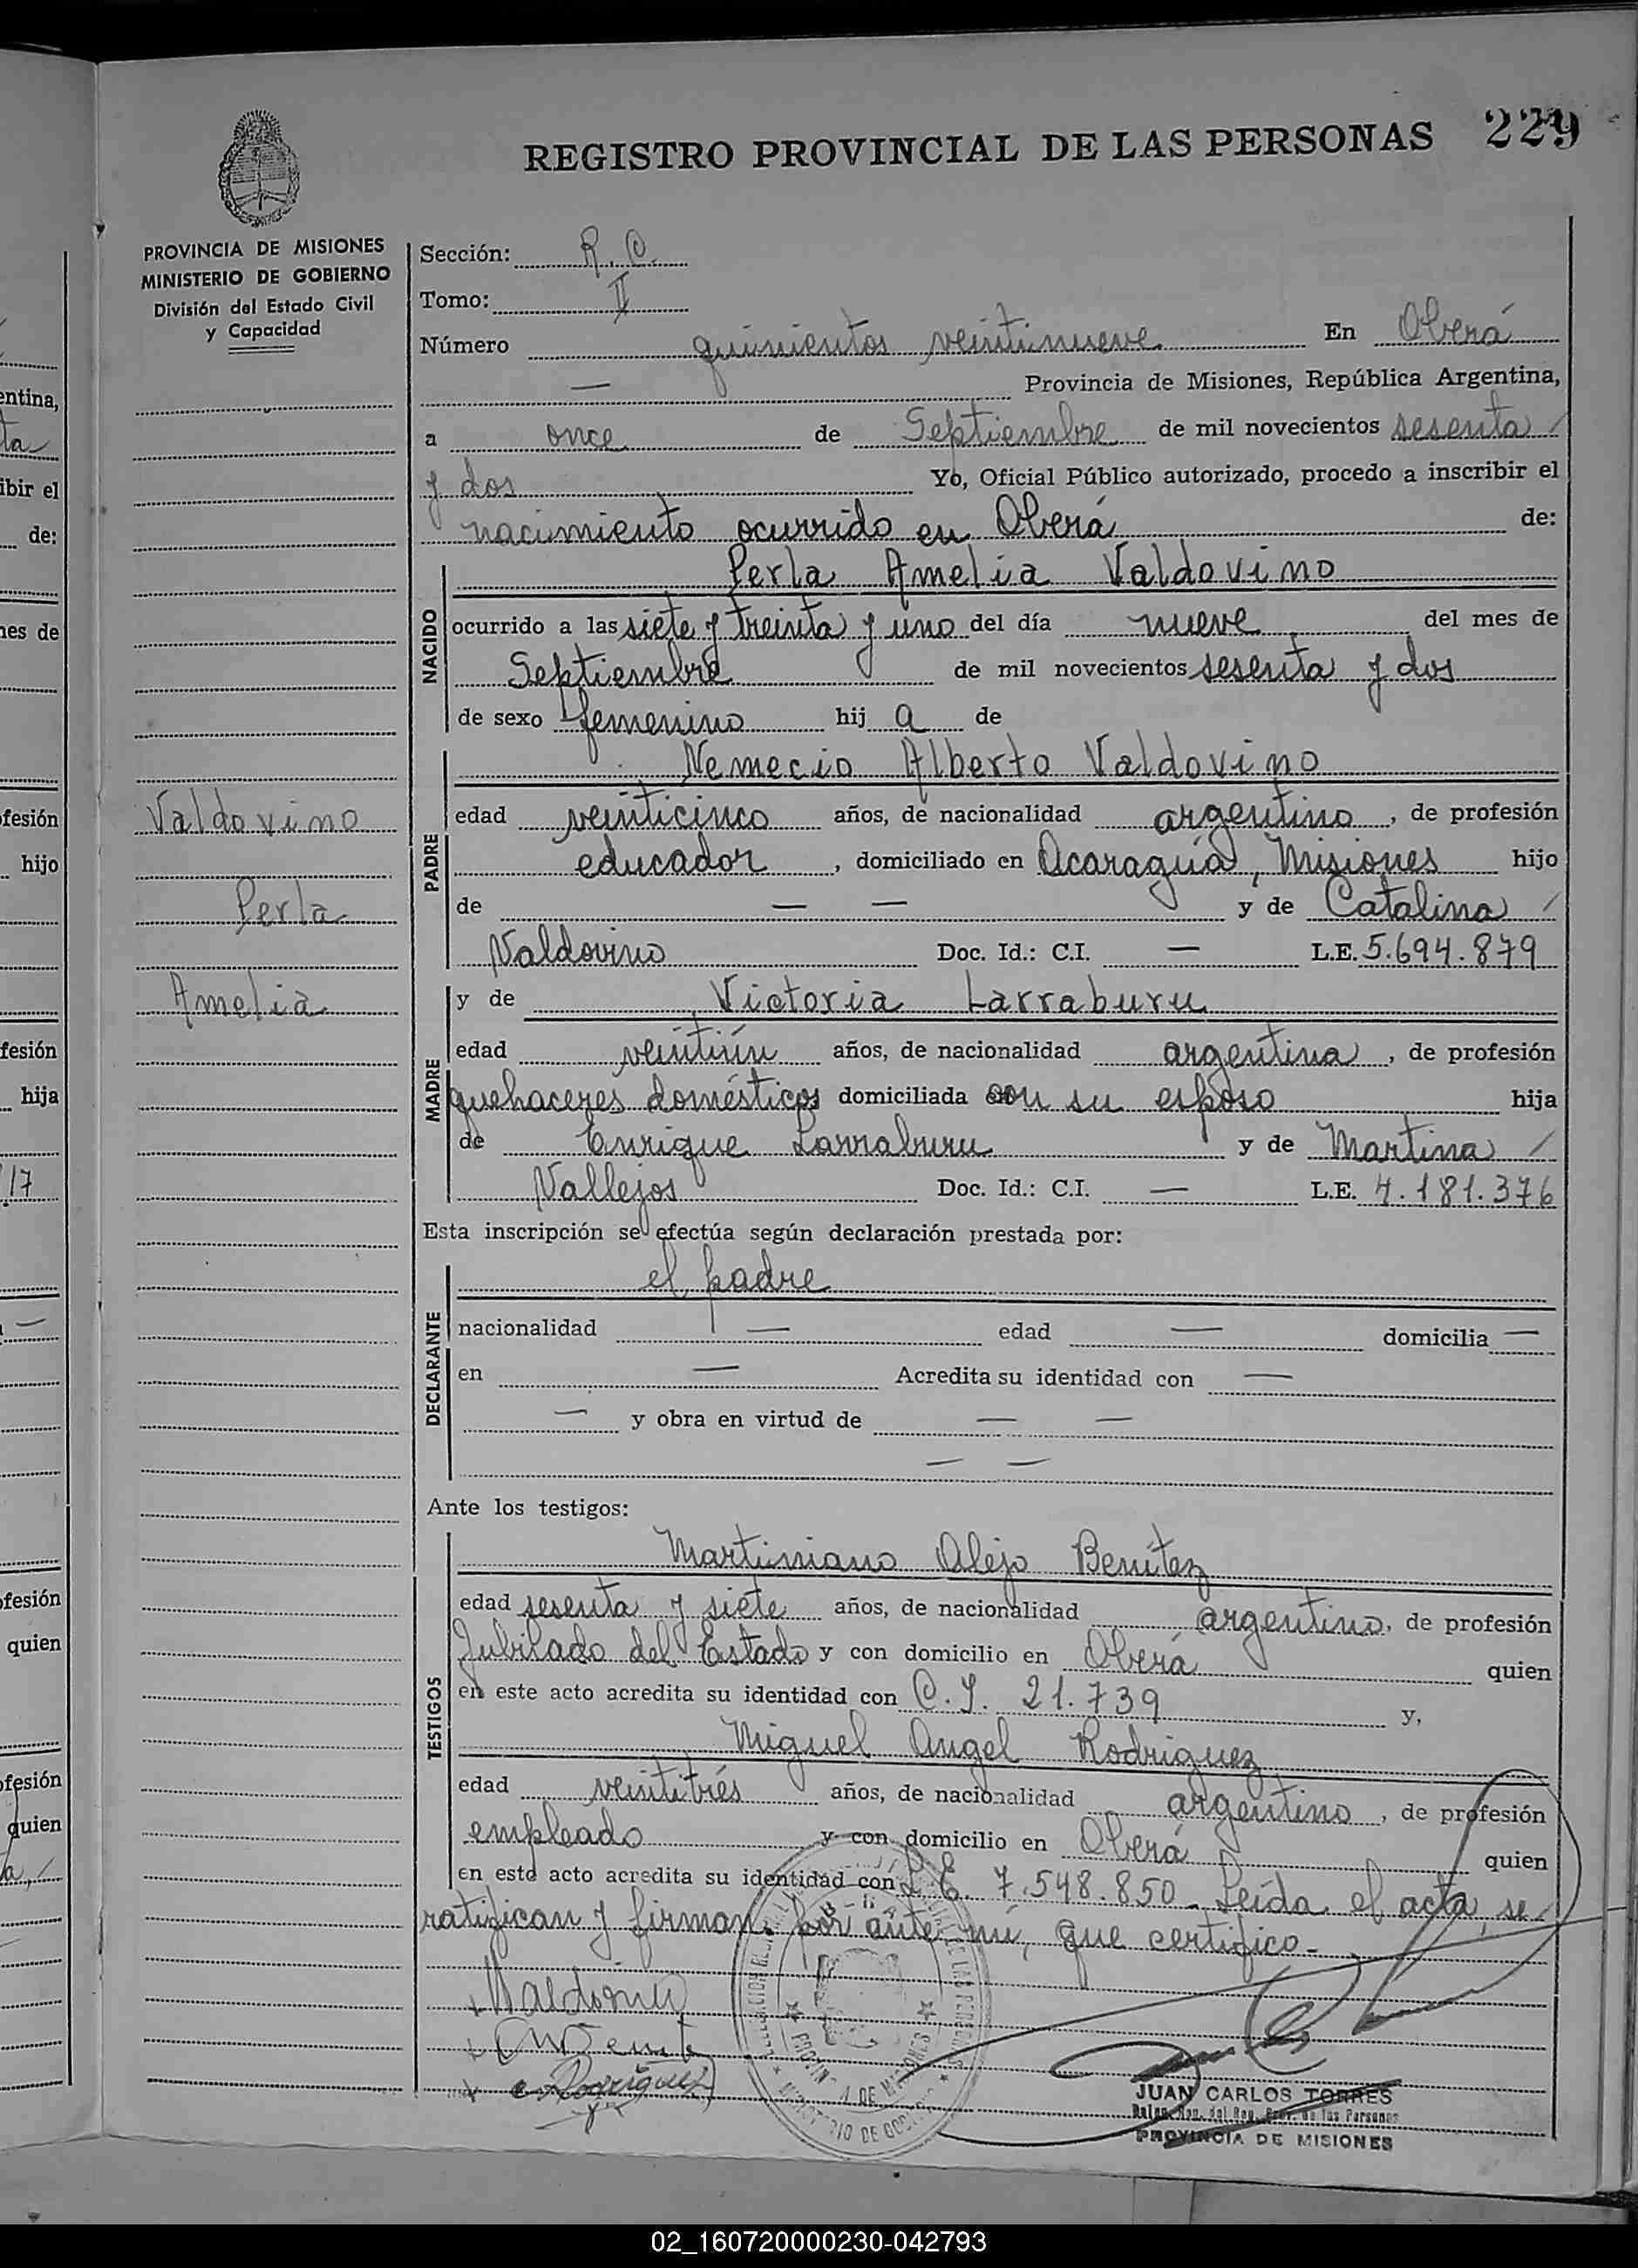 REGISTRO PROVINCIAL DE LAS PERSONAS 229
PROVINCIA DE MISIONES
MINISTERIO DE GOBIERNO
División del Estado Civil
y Capacidad
Valdovino
Perla
Amelia
Sección: R. C.
Tomo: II
Número quinientos veintinueve En Oberá
— Provincia de Misiones, República Argentina,
a once de Septiembre de mil novecientos sesenta
y dos Yo, Oficial Público autorizado, procedo a inscribir el
nacimiento ocurrido en Oberá de:
NACIDO
Perla Amelia Valdovino
ocurrido a las siete y treinta y uno del día nueve del mes de
Septiembre de mil novecientos sesenta y dos
de sexo femenino hij a de
PADRE
Nemecio Alberto Valdovino
edad veinticinco años, de nacionalidad argentino, de profesión
educador, domiciliado en Acaraguá, Misiones hijo
de — — y de Catalina /
Valdovino Doc. Id.: C.I. — L.E. 5.694.879
MADRE
y de Victoria Larraburu
edad veintiún años, de nacionalidad argentina, de profesión
quehaceres domésticos domiciliada con su esposo hija
de Enrique Larraburu y de Martina /
Vallejos Doc. Id.: C.I. — L.E. 4.181.376
Esta inscripción se efectúa según declaración prestada por:
DECLARANTE
el padre
nacionalidad — edad — domicilia —
en — Acredita su identidad con —
— y obra en virtud de — —
— —
Ante los testigos:
TESTIGOS
Martiniano Alejo Benítez
edad sesenta y siete años, de nacionalidad argentino, de profesión
Jubilado del Estado y con domicilio en Oberá quien
en este acto acredita su identidad con C.I. 21.739 y,
Miguel Angel Rodriguez
edad veintitrés años, de nacionalidad argentino, de profesión
empleado y con domicilio en Oberá quien
en este acto acredita su identidad con L.E. 7.548.850 - Leída el acta, se
ratifican y firman por ante mí, que certifico -
Valdovino
Rodriguez
JUAN CARLOS TORRES
PROVINCIA DE MISIONES
02_160720000230-042793